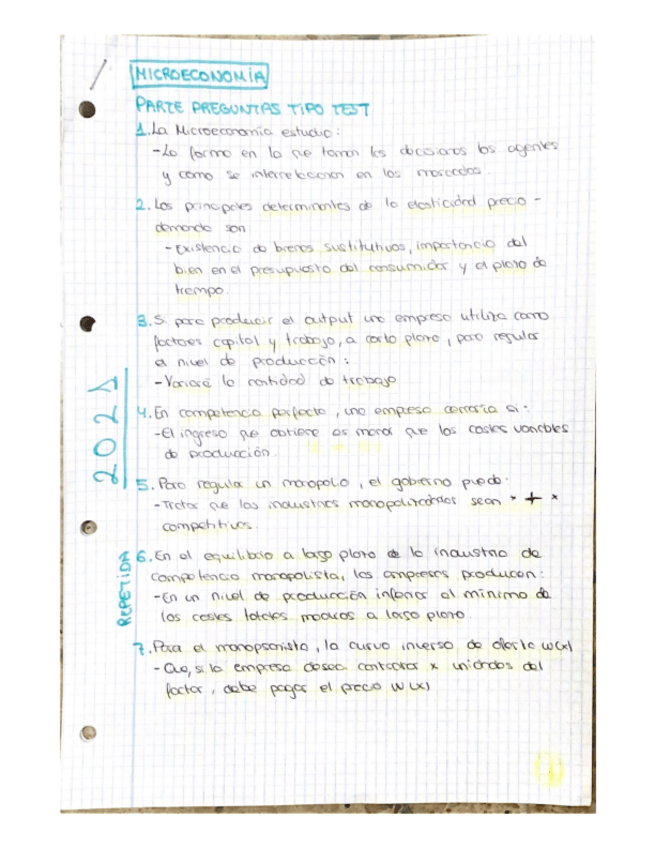 MICROECONOMÍA
PARTE PREGUNTAS TIPO TEST
1. La Microeconomía estudia:
- La forma en la que toman las decisiones los agentes
y como se interrelacionan en los mercados.
2. Los principales determinantes de la elasticidad precio -
demanda son
- Existencia de bienes sustitutivos, importancia del
bien en el presupuesto del consumidor y el plazo de
tiempo.
3. Si para producir el output una empresa utiliza como
factores capital y trabajo, a corto plazo, para regular
el nivel de producción:
- Variará la cantidad de trabajo
4. En competencia perfecta, una empresa cerraría si:
- El ingreso que obtiene es menor que los costes variables
de producción.
2021
5. Para regular un monopolio, el gobierno puede:
- Tratar que las industrias monopolizadas sean * + *
competitivas.
REPETIDA
6. En el equilibrio a largo plazo de la industria de
competencia monopolista, las empresas producen:
- En un nivel de producción inferior al mínimo de
los costes totales medios a largo plazo.
7. Para el monopsonista, la curva inversa de oferta w(x)
- Que, si la empresa desea contratar x unidades del
factor, debe pagar el precio w(x)
1